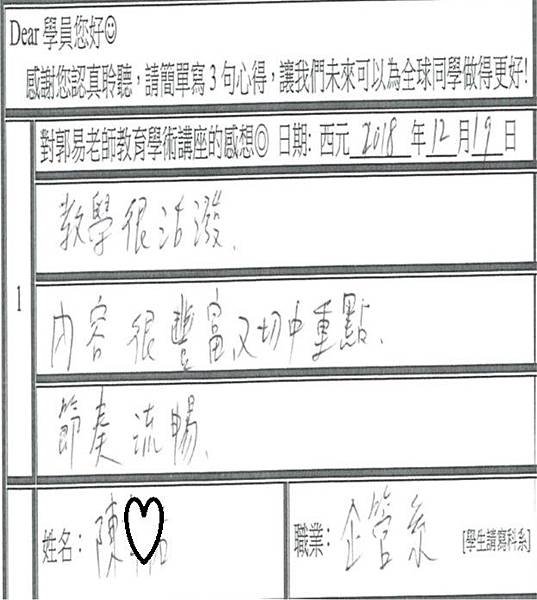 Dear 學員您好☺
感謝您認真聆聽，請簡單寫3句心得，讓我們未來可以為全球同學做得更好!
對郭易老師教育學術講座的感想◎ 日期: 西元 2018 年 12 月 19 日
1
教學很活潑、
內容很豐富又切中重點、
節奏流暢、
姓名: 陳
職業: 企管系 [學生請寫科系]